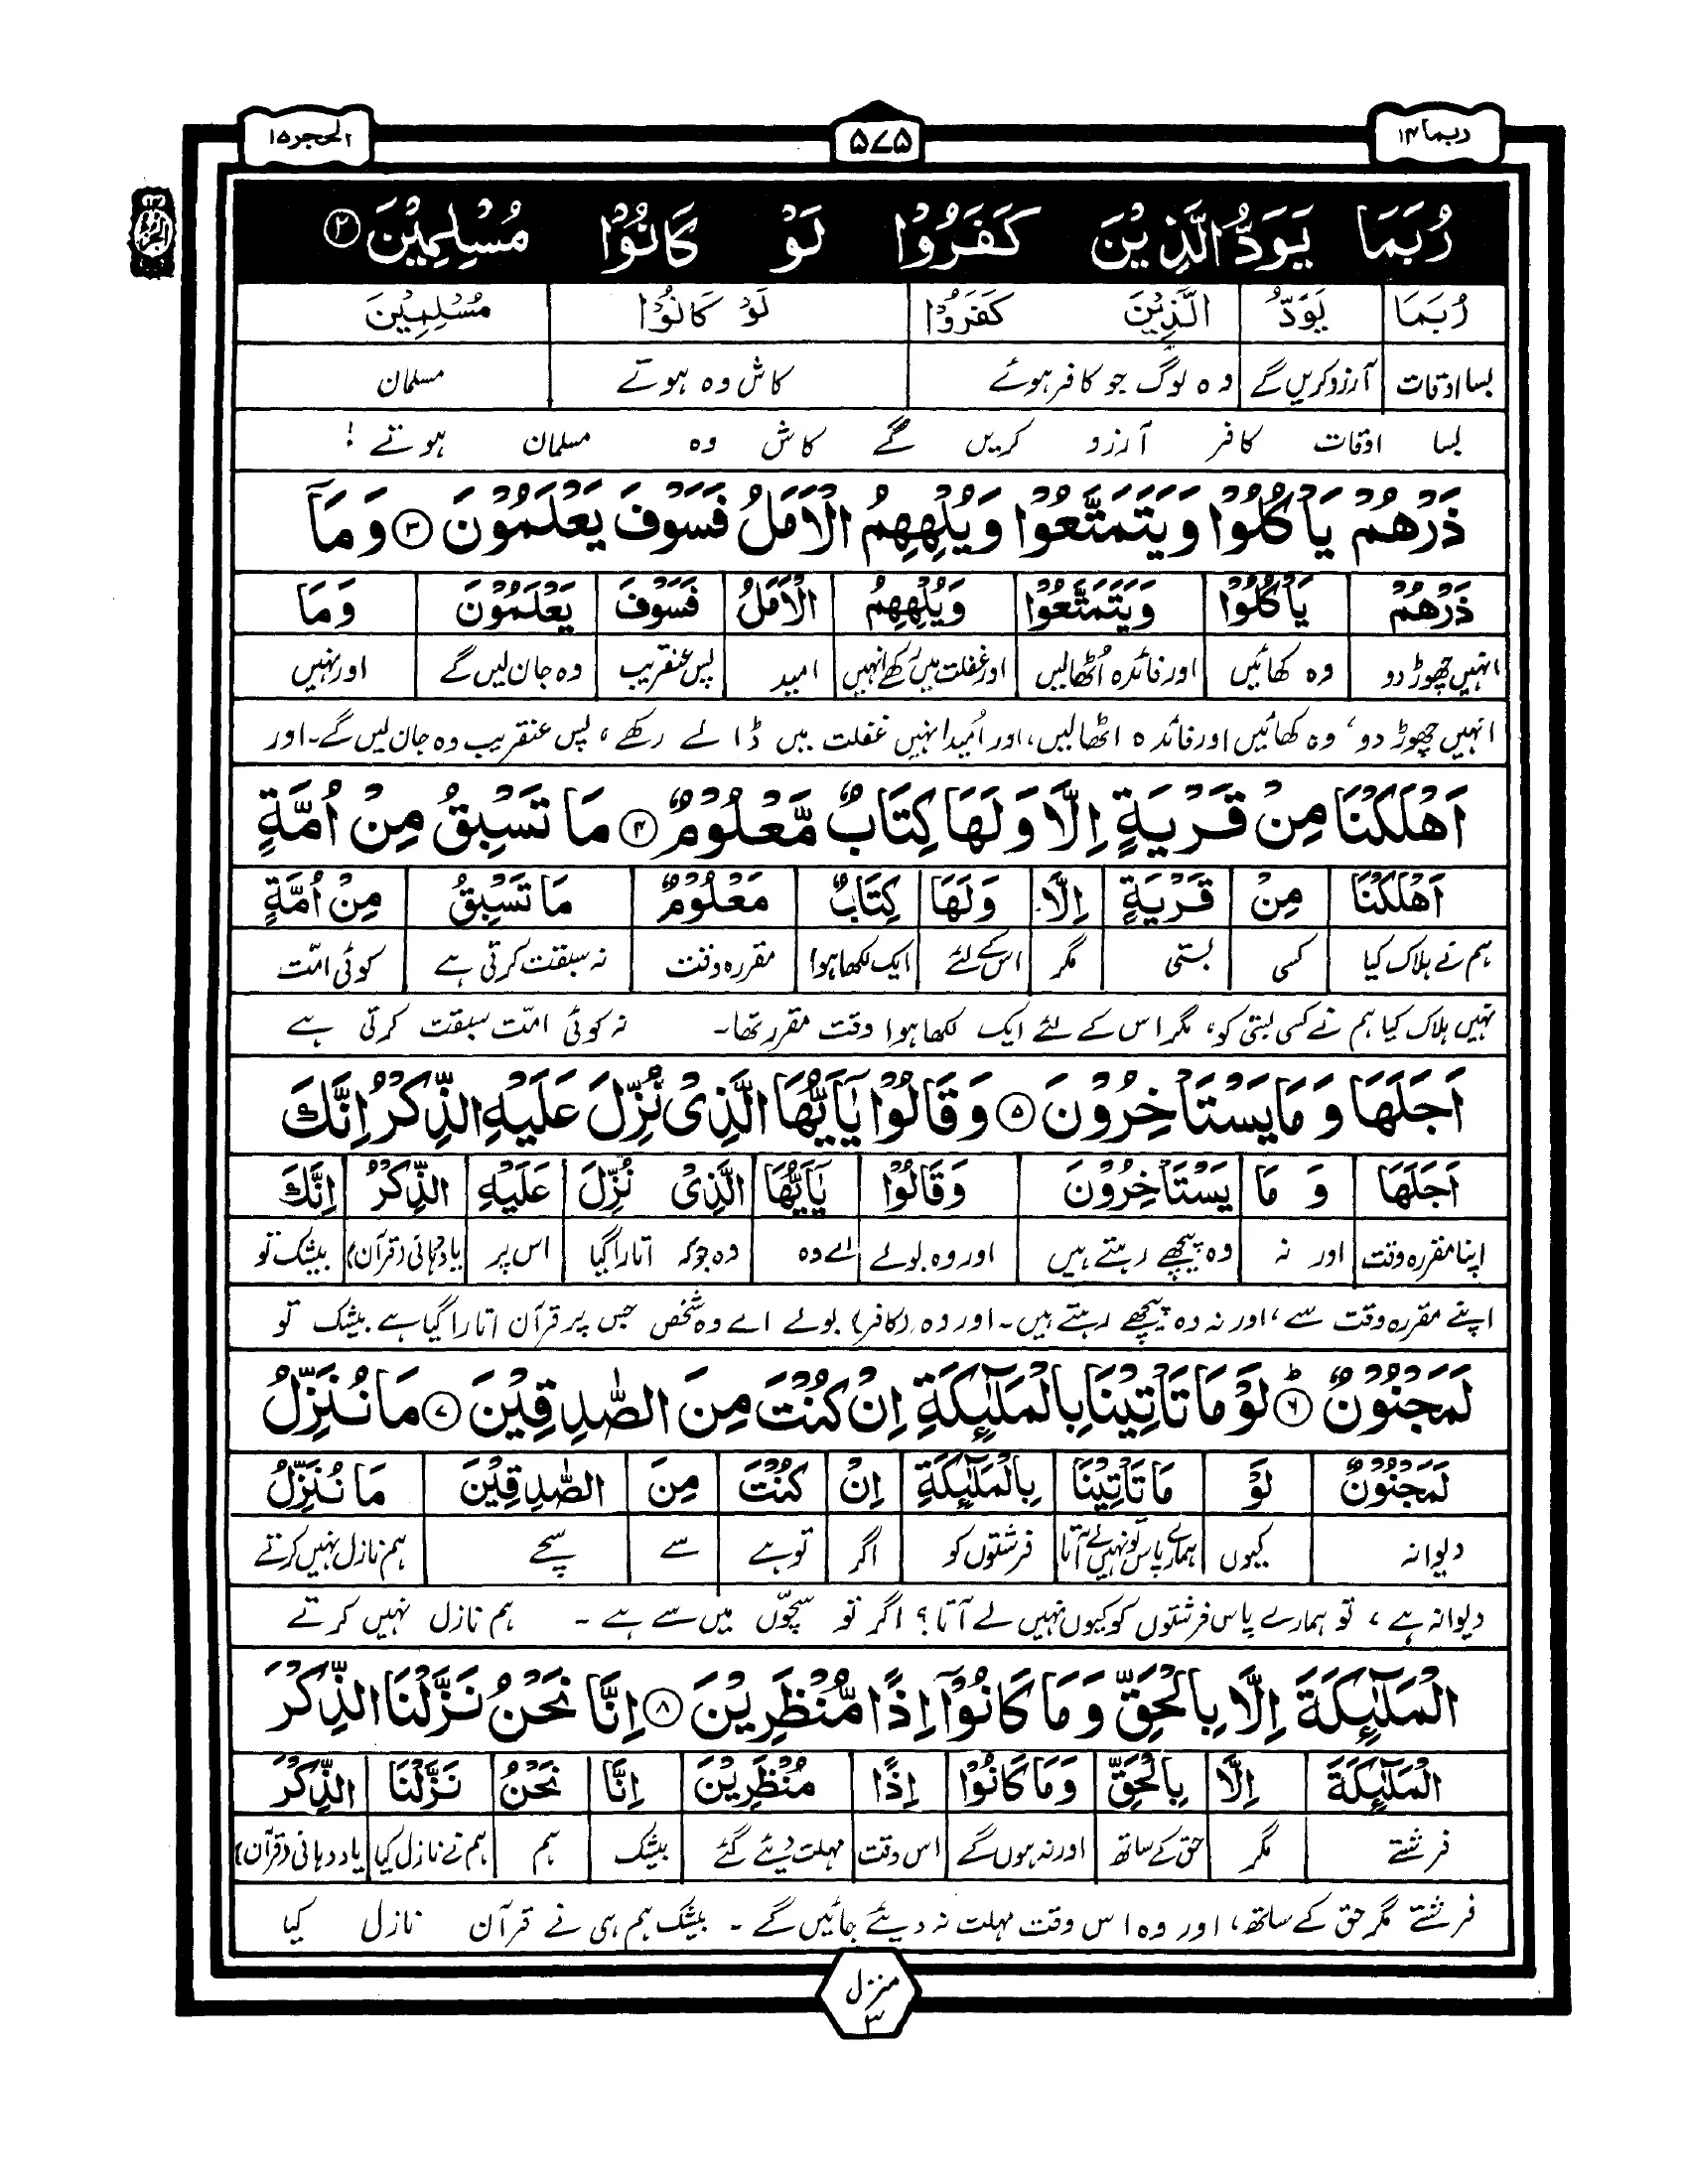 ربما ۱۴
۵۷۵
الحجر ۱۵
رُبَمَا يَوَدُّ الَّذِيْنَ كَفَرُوْا لَوْ كَانُوْا مُسْلِمِيْنَ ②
رُبَمَا يَوَدُّ الَّذِيْنَ كَفَرُوْا لَوْ كَانُوْا مُسْلِمِيْنَ
بسا اوقات آرزو کریں گے وہ لوگ جو کافر ہوئے کاش وہ ہوتے مسلمان
بسا اوقات کافر آرزو کریں گے کاش وہ مسلمان ہوتے !
ذَرْهُمْ يَاْكُلُوْا وَيَتَمَتَّعُوْا وَيُلْهِهِمُ الْاَمَلُ فَسَوْفَ يَعْلَمُوْنَ ③ وَمَآ
ذَرْهُمْ يَاْكُلُوْا وَيَتَمَتَّعُوْا وَيُلْهِهِمُ الْاَمَلُ فَسَوْفَ يَعْلَمُوْنَ وَمَا
انہیں چھوڑ دو وہ کھائیں اور فائدہ اُٹھالیں اور غفلت میں رکھے انہیں امید پس عنقریب وہ جان لیں گے اور نہیں
انہیں چھوڑ دو، وہ کھائیں اور فائدہ اٹھالیں، اور اُمید انہیں غفلت میں ڈالے رکھے، پس عنقریب وہ جان لیں گے۔ اور
اَهْلَكْنَا مِنْ قَرْيَةٍ اِلَّا وَلَهَا كِتَابٌ مَّعْلُوْمٌ ④ مَا تَسْبِقُ مِنْ اُمَّةٍ
اَهْلَكْنَا مِنْ قَرْيَةٍ اِلَّا وَلَهَا كِتَابٌ مَعْلُوْمٌ مَا تَسْبِقُ مِنْ اُمَّةٍ
ہم نے ہلاک کیا کسی بستی مگر اس کے لئے ایک لکھا ہوا مقررہ وقت نہ سبقت کرتی ہے کوئی امّت
نہیں ہلاک کیا ہم نے کسی بستی کو، مگر اس کے لئے ایک لکھا ہوا وقت مقرر تھا۔ نہ کوئی امّت سبقت کرتی ہے
اَجَلَهَا وَمَا يَسْتَاْخِرُوْنَ ⑤ وَقَالُوْا يٰٓاَيُّهَا الَّذِىْ نُزِّلَ عَلَيْهِ الذِّكْرُ اِنَّكَ
اَجَلَهَا وَ مَا يَسْتَاْخِرُوْنَ وَقَالُوْا يٰٓاَيُّهَا الَّذِىْ نُزِّلَ عَلَيْهِ الذِّكْرُ اِنَّكَ
اپنا مقررہ وقت اور نہ وہ پیچھے رہتے ہیں اور وہ بولے اے وہ وہ جو کہ اتارا گیا اس پر یاد دہانی (قرآن) بیشک تو
اپنے مقررہ وقت سے، اور نہ وہ پیچھے رہتے ہیں۔ اور وہ (کافر) بولے اے وہ شخص جس پر قرآن اتارا گیا ہے بیشک تو
لَمَجْنُوْنٌ ⑥ؕ لَوْ مَا تَاْتِيْنَا بِالْمَلٰٓئِكَةِ اِنْ كُنْتَ مِنَ الصّٰدِقِيْنَ ⑦ مَا نُنَزِّلُ
لَمَجْنُوْنٌ لَوْ مَا تَاْتِيْنَا بِالْمَلٰٓئِكَةِ اِنْ كُنْتَ مِنَ الصّٰدِقِيْنَ مَا نُنَزِّلُ
دیوانہ کیوں ہمارے پاس تو نہیں لے آتا فرشتوں کو اگر تو ہے سے سچے ہم نازل نہیں کرتے
دیوانہ ہے، تو ہمارے پاس فرشتوں کو کیوں نہیں لے آتا؟ اگر تو سچّوں میں سے ہے۔ ہم نازل نہیں کرتے
الْمَلٰٓئِكَةَ اِلَّا بِالْحَقِّ وَمَا كَانُوْٓا اِذًا مُّنْظَرِيْنَ ⑧ اِنَّا نَحْنُ نَزَّلْنَا الذِّكْرَ
الْمَلٰٓئِكَةَ اِلَّا بِالْحَقِّ وَمَا كَانُوْٓا اِذًا مُنْظَرِيْنَ اِنَّا نَحْنُ نَزَّلْنَا الذِّكْرَ
فرشتے مگر حق کے ساتھ اور نہ ہوں گے اس وقت مہلت دیئے گئے بیشک ہم ہم نے نازل کیا یاد دہانی (قرآن)
فرشتے مگر حق کے ساتھ، اور وہ اس وقت مہلت نہ دیئے جائیں گے۔ بیشک ہم ہی نے قرآن نازل کیا
منزل ۳